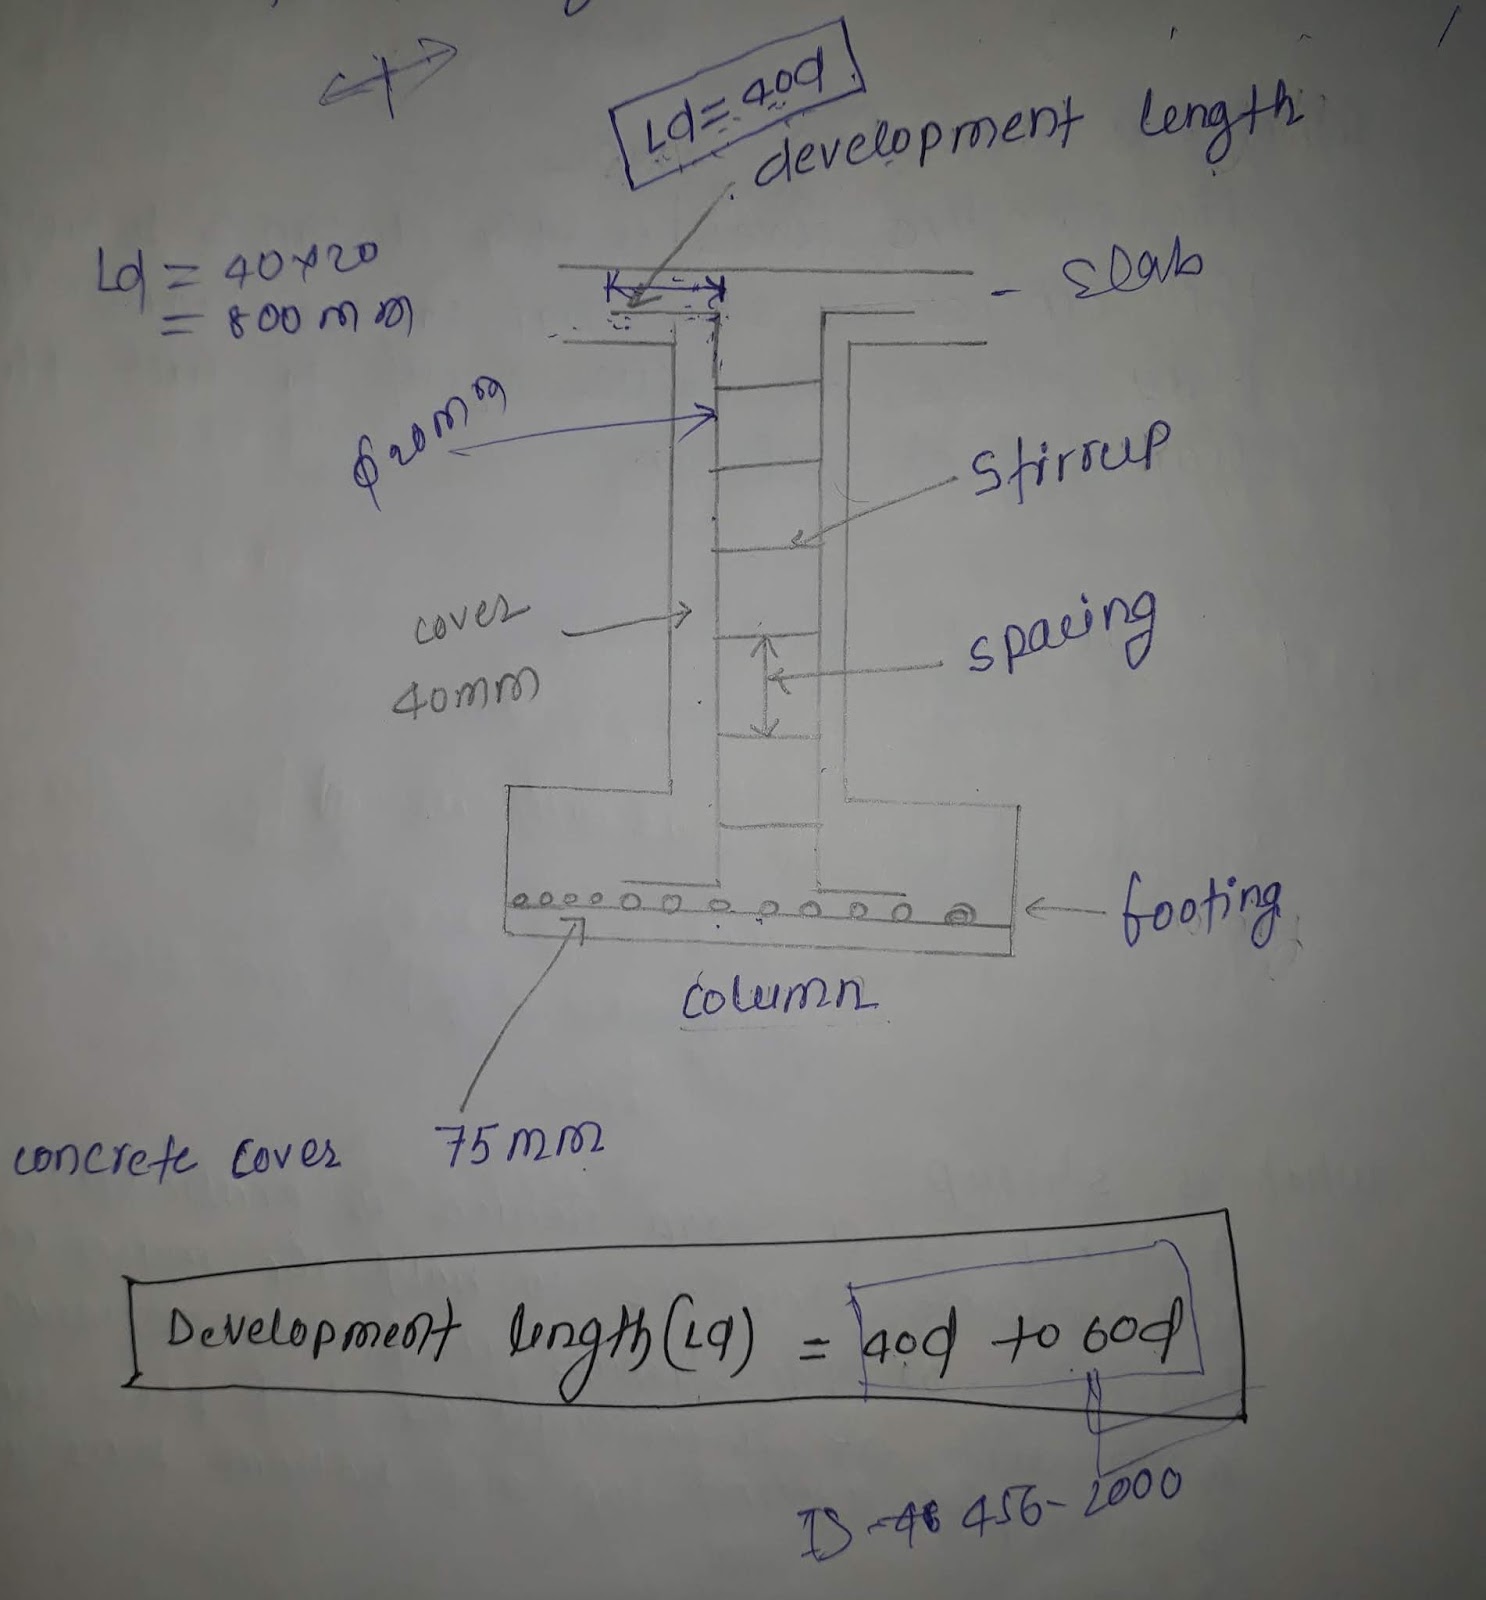 Ld = 40d
development length
Ld = 40×20
= 800 mm
slab
ϕ 20mm
stirrup
cover
40mm
spacing
footing
column
concrete cover 75mm
Development length (Ld) = 40d to 60d
IS - 456-2000